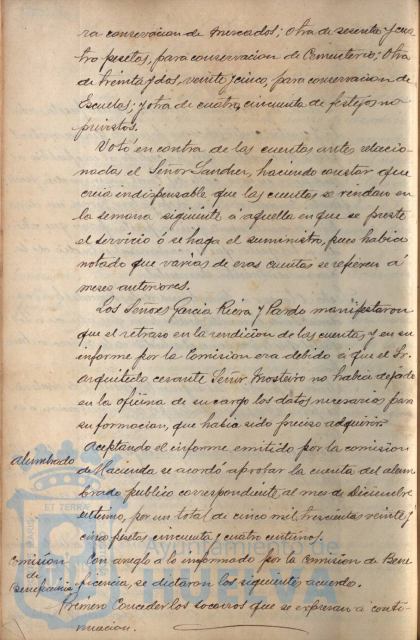 ra conservacion de Mercados; otra de sesenta y cua
tro pesetas, para conservacion de Cementerio; Otra
de treinta y dos, veinte y cinco, para conservacion de
Escuelas; y otra de cuatro, cincuenta de festejos no
previstos.
Votó en contra de las cuentas antes relacio-
nadas el Señor Sanchez, haciendo constar que
creia indispensable que las cuentas se rindan en
la semana siguiente á aquella en que se preste
el servicio ó se haga el suministro, pues habia
notado que varias de esas cuentas se refieren á
meses anteriores.
Los Señores Garcia Riera y Pardo manifestaron
que el retraso en la rendicion de las cuentas, y en su
informe por la Comision era debido á que el Sr.
arquitecto cesante Señor Mosteiro no habia dejado
en la oficina de su cargo los datos necesarios para
su formacion, que habia sido preciso adquirir.
Alumbrado
Aceptando el informe emitido por la comision
de Hacienda se acordó aprobar la cuenta del alum
brado publico correspondiente al mes de Diciembre
ultimo, por un total de cinco mil trescientas veinte y
cinco pesetas cincuenta y cuatro centimos.
Comision
de
Beneficencia
Con arreglo á lo informado por la Comision de Bene
ficencia, se dictaron los siguientes acuerdo.
Primero Conceder los socorros que se expresan á conti-
nuacion.
Ayuntamiento de
HUELVA